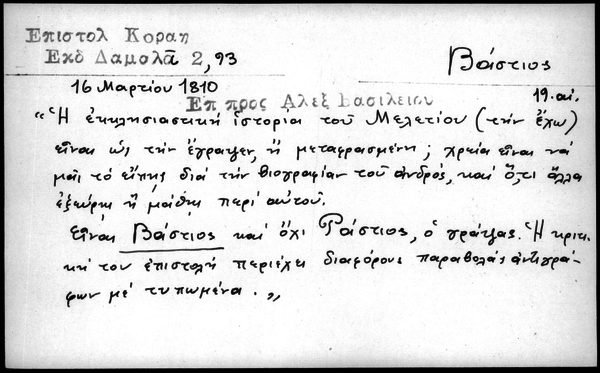 Επιστολ Κοραη
Εκδ Δαμαλᾶ 2, 93
Βάστιος
16 Μαρτίου 1810
19. αἰ.
Επ προς Αλεξ Βασιλειου
"Ἡ ἐκκλησιαστική ἱστορία τοῦ Μελετίου (τήν ἔχω)
εἶναι ὡς τήν ἔγραψεν, ἤ μεταφρασμένη; χρεία εἶναι νά
μᾶς τό εἴπῃς διά τήν βιογραφίαν τοῦ ἀνδρός, καί ὅ,τι ἄλλα
ἐξεύρῃς ἤ μάθῃς περί αὐτοῦ.
Εἶναι Βάστιος καί ὄχι Ράστιος, ὁ γράψας. Ἡ κριτι-
κή του ἐπιστολή περιέχει διαφόρους παραβολάς ἀντιγρά-
φων μέ τυπωμένα. "